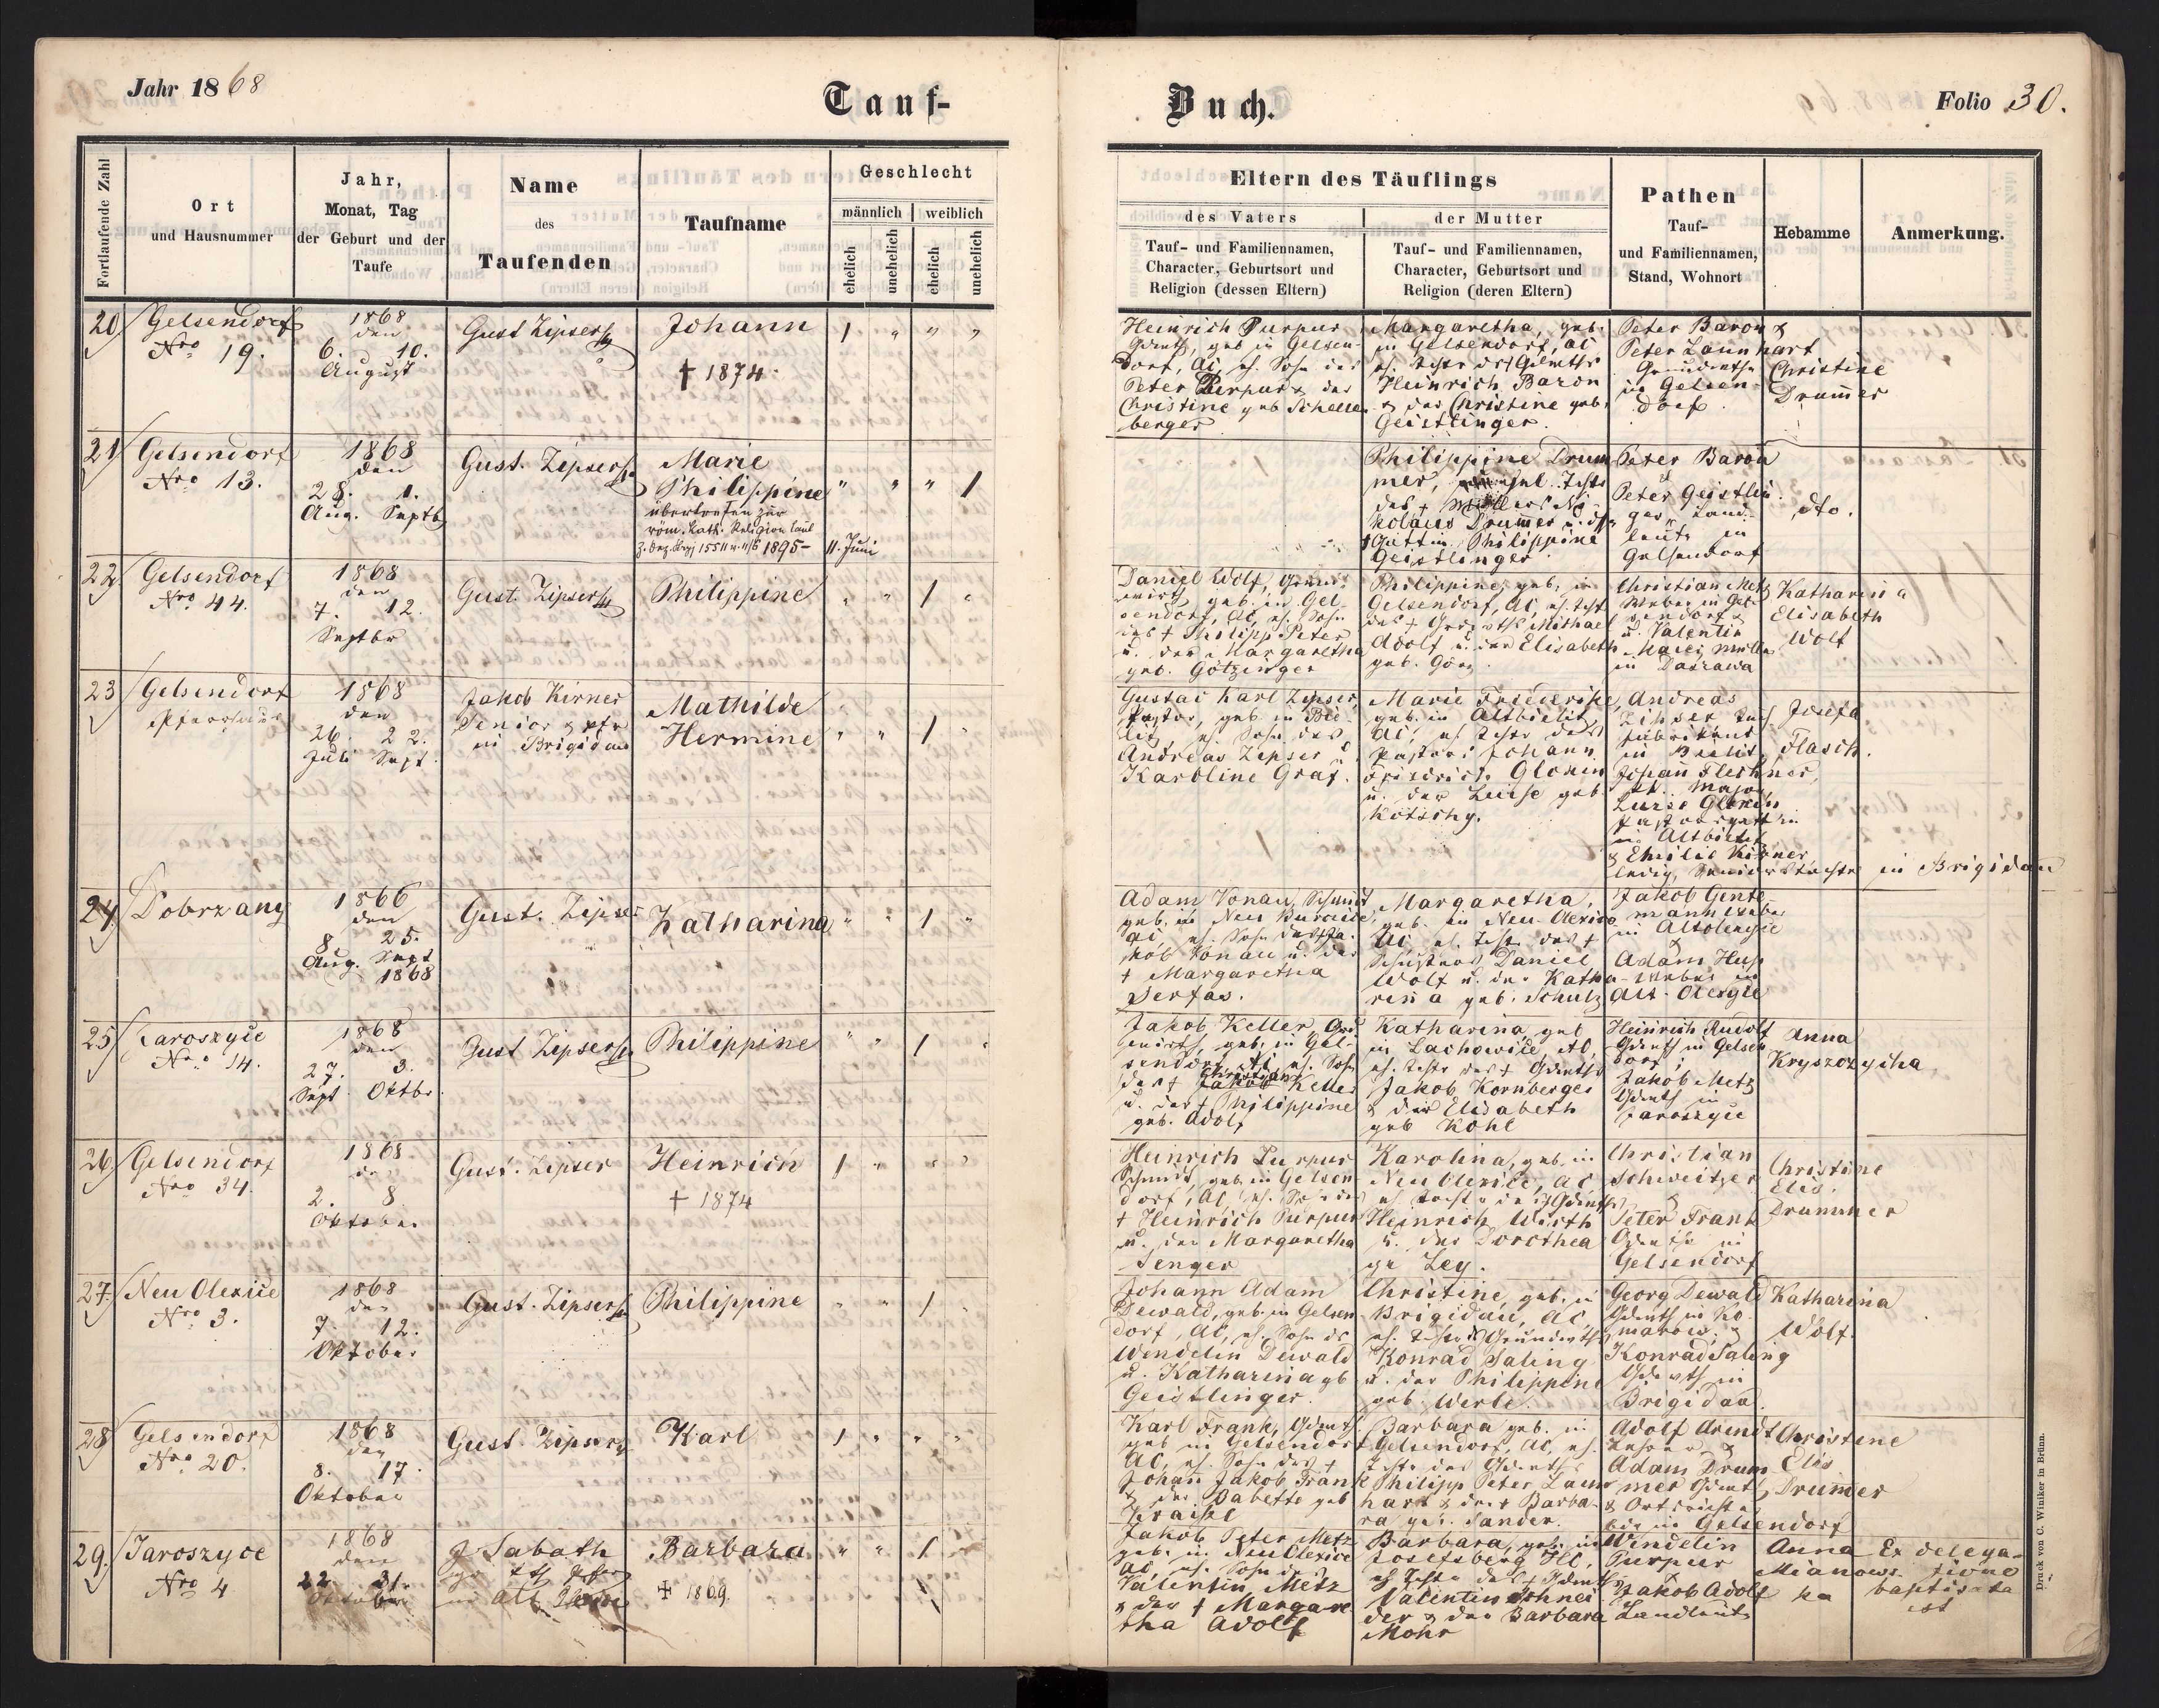 Jahr 1868
Tauf-
Buch.
Folio 30.
Fortlaufende Zahl
Ort
und Hausnummer
Jahr,
Monat, Tag
der Geburt und der
Taufe
Name
des
Taufenden
Taufname
Geschlecht
männlich
weiblich
ehelich
unehelich
ehelich
unehelich
Eltern des Täuflings
des Vaters
der Mutter
Tauf- und Familiennamen,
Character, Geburtsort und
Religion (dessen Eltern)
Tauf- und Familiennamen,
Character, Geburtsort und
Religion (deren Eltern)
Pathen
Tauf-
und Familiennamen,
Stand, Wohnort
Hebamme
Anmerkung.
20
Gelsendorf
Nro 19.
1868
den
6. 10.
August
Gust Zipser
Johann
† 1874.
1 " " "
Heinrich Purpur
geb in Gelsen-
dorf, AC, eh. Sohn des
Peter Purpur & der
Christine geb Schellen-
berger
Margaretha, geb.
in Gelsendorf, AC
eh.
Heinrich Baron
& der Christine geb.
Geistlinger.
Peter Baron &
Peter Launhart
in Gelsen-
dorf.
Christine
Drum̄er
21
Gelsendorf
Nro 13.
1868
den
28. 1.
Aug. Septb
Gust. Zipser
Marie
Philippine
übertreten zur
röm. kath. Religion laut
1895 – 11. Juni
" " " 1
Philippine Drum
mer,
des † Müllers Ni-
kolaus Drum̄er u. d
Gattin Philippine
Geistlinger
Peter Baron
Peter Geistlin-
ger, Land-
leute in
Gelsendorf
dto.
22
Gelsendorf
Nro 44.
1868
den
7. 12.
Septbr
Gust. Zipser
Philippine
" " 1 "
Daniel Wolf,
geb. in Gel-
sendorf, AC, eh. Sohn
des † Philipp Peter
u. der Margaretha
geb. Götzinger
Philippine, geb. in
Gelsendorf, AC, eh.
des † Michael
Adolf u. der Elisabeth
geb. Görz.
Christian Metz
Weber in Gel-
sendorf
u. Valentin
Müller
in Daszawa
Katharina
Elisabeth
Wolf
23
Gelsendorf
Pfarrhaus
1868
den
26. 22.
Juli Sept.
Jakob Kirner
Senior & Pfr
in Brigidau
Mathilde
Hermine
" " 1 "
Gustav Karl Zipser,
Pastor, geb. in Bie-
litz, eh. Sohn des
Andreas Zipser u
Karoline Graf.
Marie Friederike,
geb. in Altbielitz,
AC, eh. des
Pastors Johann
Friedrich Glonin
u. der Luise geb.
Kotschy.
Andreas
Zipser
fabrikant
in Bielitz,
Johañ Flechner,
Major,
Luise Glonin
Pastorsgattin
in Altbielitz
& Emilie Kirner
ledig, Seniorstochter in Brigidau
Josefa
Flasch.
24.
Dobrzany
1866
den
8. 25.
Aug. Sept
1868
Gust. Zipser
Katharina
" " 1 "
Adam Vonau, Schmidt
geb. in Neu Burczice,
AC, eh. Sohn des † Ja-
kob Vonau u. der
† Margaretha
Serfas.
Margaretha,
geb. in Neu Olexice
AC eh. des †
Schusters Daniel
Wolf u. der Katha-
rina geb. Schulz
Jakob Gente
mann Weber
in Altolexyce
&
Adam Hup
Weber in
Alt-Olexyce
25
Jaroszyce
Nro 14.
1868
den
27. 3.
Sept. Oktbr.
Gust Zipser
Philippine
" " 1 "
Jakob Keller, Grd
wirth, geb. in Gel-
sendorf, AC, eh. Sohn
des † Christian Keller
u. der † Philippine
geb. Adolf
Katharina, geb
in Lachowice, AC,
eh. des †
Jakob Kornberger
& der Elisabeth
geb Kohl
Heinrich Rudolf
in Gelsen
dorf,
Jakob Metz
in
Jaroszyce
Anna
Kryszozycha
26
Gelsendorf
Nro 34.
1868
den
2. 8.
Oktober
Gust. Zipser
Heinrich
† 1874
1 " " "
Heinrich Purpur
Schmidt, geb. in Gelsen
dorf, AC, eh. Sohn des
† Heinrich Purpur
u. der Margaretha
Senger
Karolina, geb. in
Neu Olexice, AC
eh. Tochter des
Heinrich Wirth
u. der Dorothea
ge Ley.
Christian
Schweitzer
&
Peter Frank
in
Gelsendorf
Christine
Elis.
Drummer
27.
Neu Olexice
Nro 3.
1868
den
7. 12.
Oktober
Gust. Zipser
Philippine
" " 1 "
Johann Adam
Dewald, geb. in Gelsen
dorf, AC, eh. Sohn des
Wendelin Dewald
u. Katharina gb
Geistlinger.
Christine, geb. in
Brigidau, AC,
eh.
Konrad Saling
u. der Philippine
geb. Werle.
Georg Dewald
in Ko-
marow &
Konrad Saling
in
Brigidau.
Katharina
Wolf.
28
Gelsendorf
Nro 20.
1868
den
8. 17.
Oktober
Gust. Zipser
Karl
1 " " "
Karl Frank,
geb in Gelsendorf
AC, eh. Sohn des †
Johañ Jakob Frank
& der Babette geb
Barbara geb. in
Gelsendorf, AC, eh.
Philipp Peter Laun
hart & der † Barba-
ra geb. Sander.
Adolf Arendt
Lehrer &
Adam Drum
mer
& Ortsrichter
in Gelsendorf
Christine
Elis
Drum̄er
29.
Jaroszyce
Nro 4
1868
den
22. 31.
Oktober
J Sabath
in Alt
Barbara
† 1869.
" " 1 "
Jakob Peter Metz
geb. in Neu Olexice
AC, eh. Sohn des
Valentin Metz
& der † Margare
tha Adolf
Barbara, geb. in
Josefsberg HC,
eh.
Valentin Schnei
der & der Barbara
Mohr
Wendelin
Purpur
&
Jakob Adolf
Landleute
Anna
Mianows-
ka
Ex delega-
tione
baptisata
est
Druck von C. Winiker in Brünn.